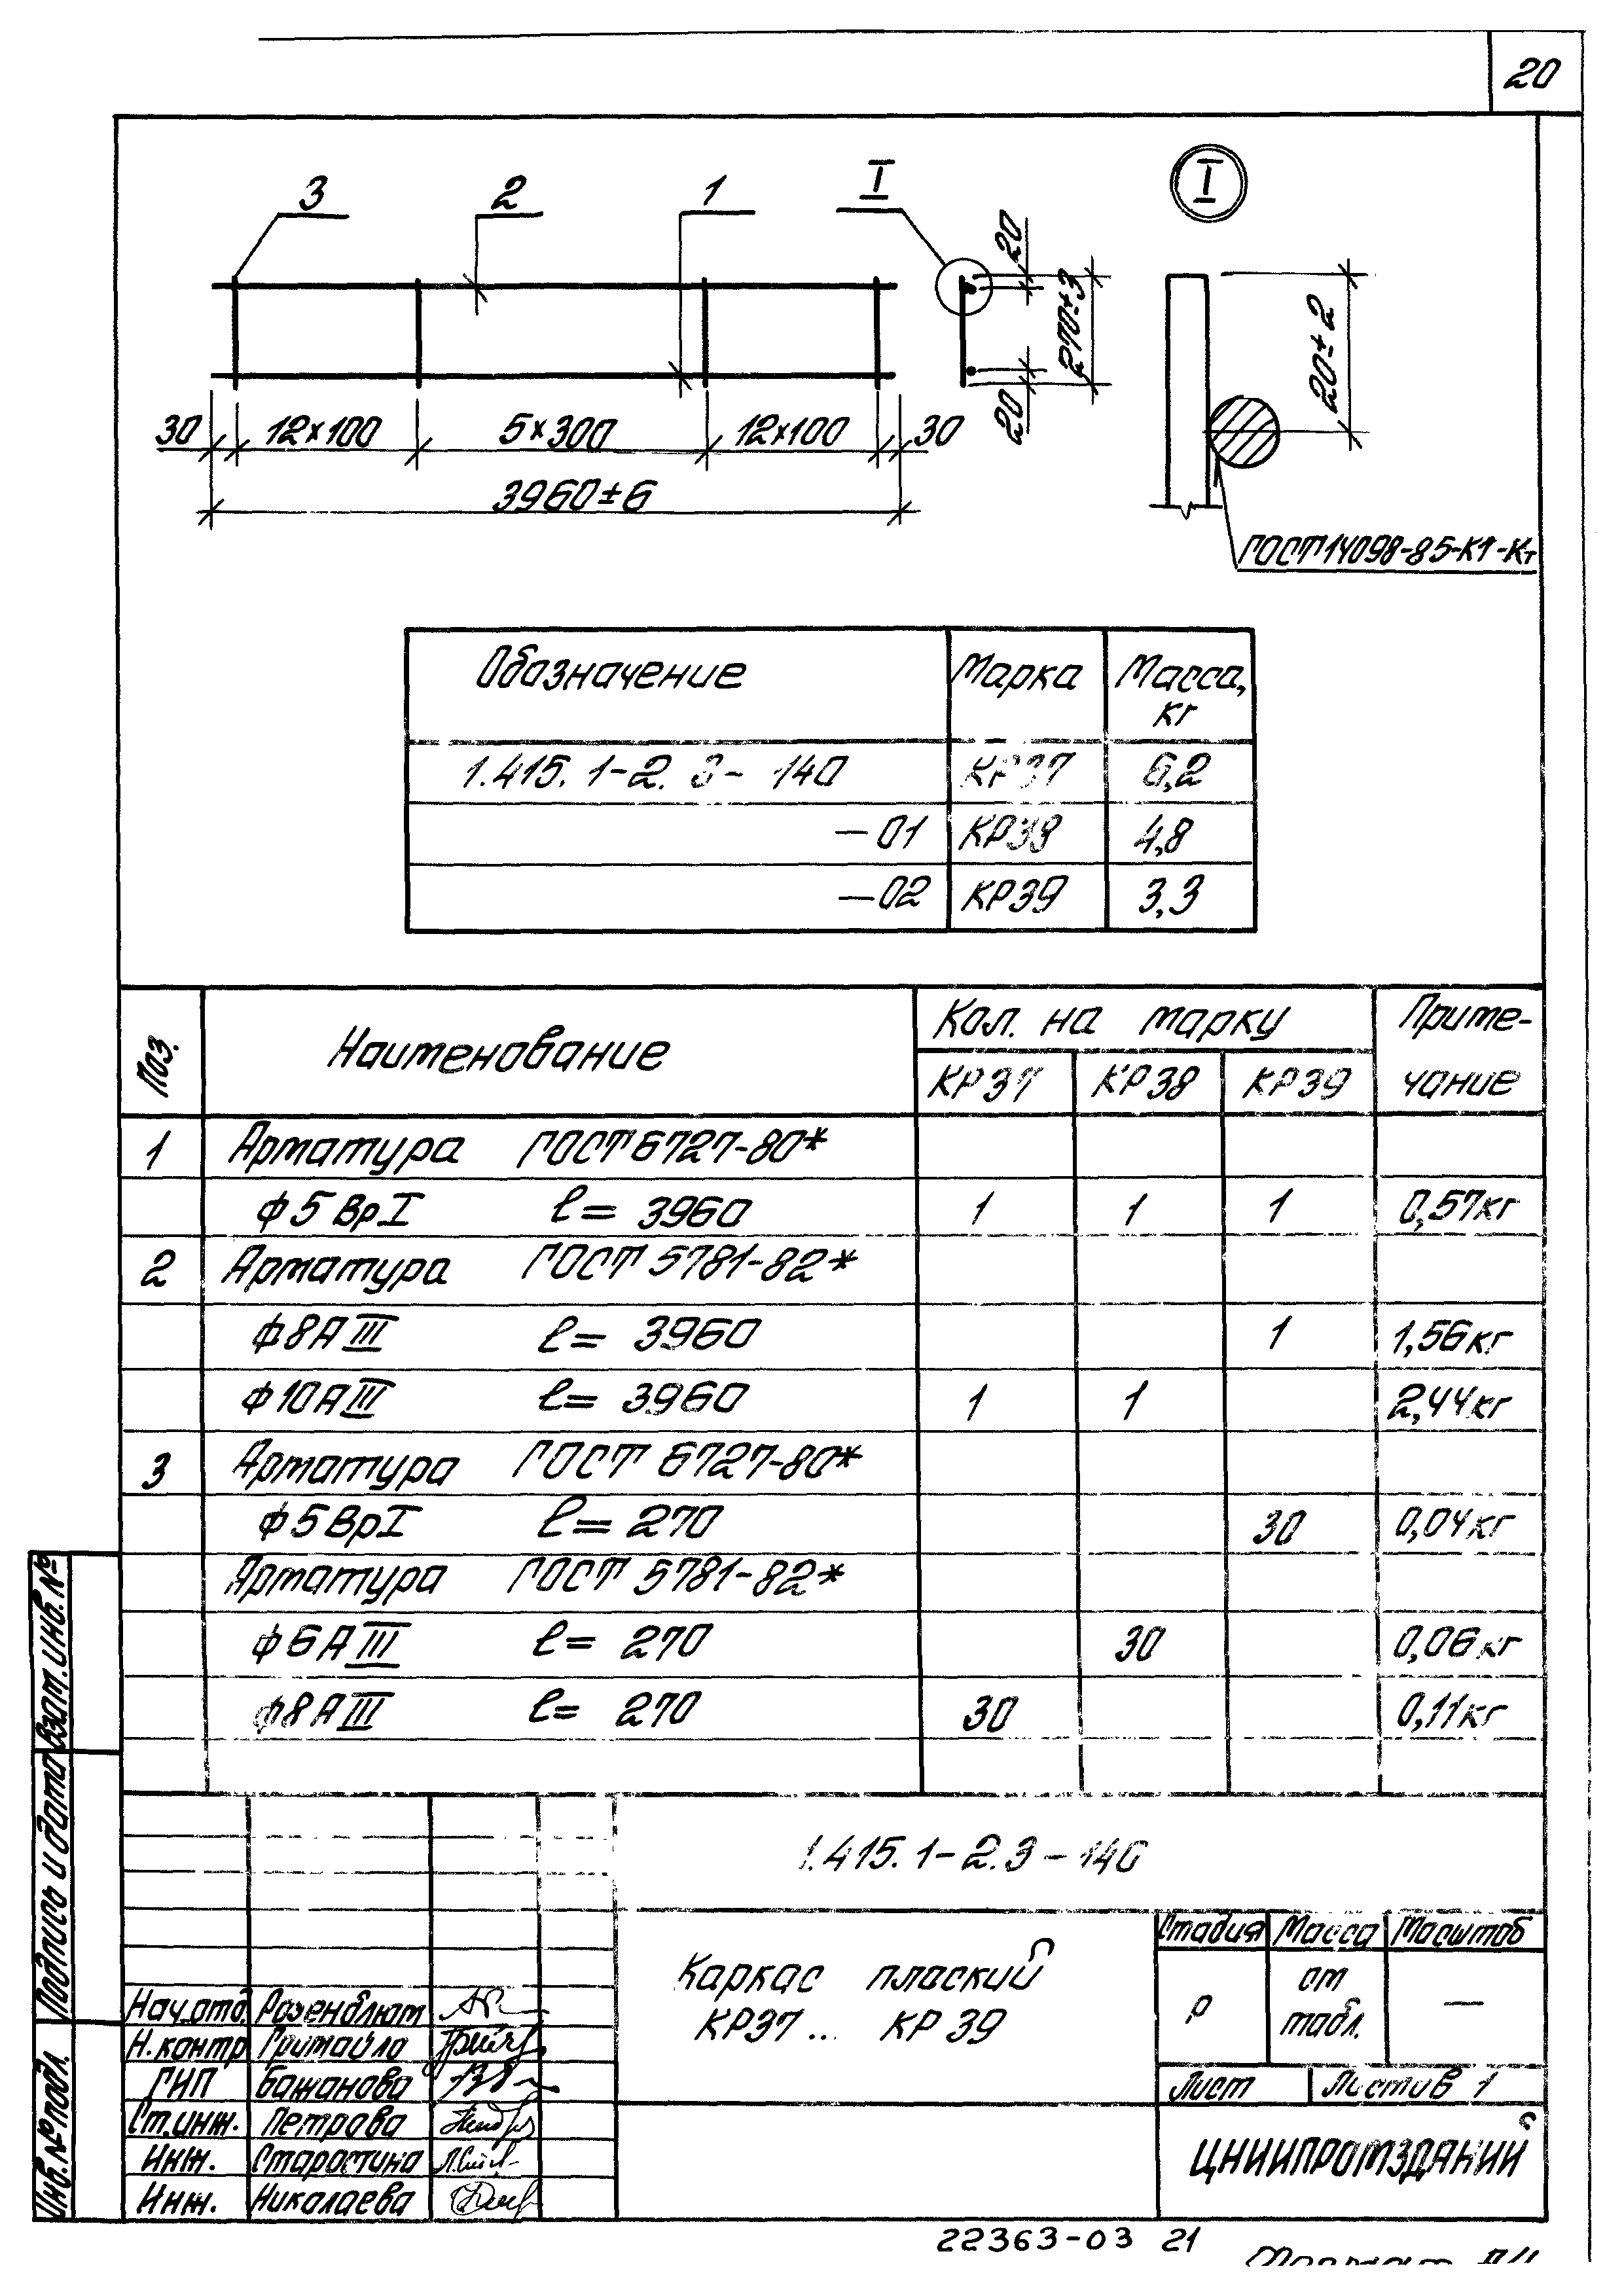 20
3 2 1 I I
20
270±3
20
20±2
30 12×100 5×300 12×100 30
3960±6
ГОСТ14098-85-К1-Кт
Обозначение Марка Масса, кг
1.415.1-2.3-140 КР37 6,2
—01 КР38 4,8
—02 КР39 3,3
Поз. Наименование Кол. на марку Приме-
КР37 КР38 КР39 чание
1 Арматура ГОСТ6727-80*
ф5ВрI ℓ=3960 1 1 1 0,57кг
2 Арматура ГОСТ 5781-82*
ф8АIII ℓ=3960 1 1,56кг
ф10АIII ℓ=3960 1 1 2,44кг
3 Арматура ГОСТ 6727-80*
ф5ВрI ℓ=270 30 0,04кг
Арматура ГОСТ 5781-82*
ф6АIII ℓ=270 30 0,06кг
ф8АIII ℓ=270 30 0,11кг
Взам.инв.№
Подпись и дата
Инв.№подл.
1.415.1-2.3-140
Каркас плоский
КР37... КР39
Стадия Масса Масштаб
Р от табл. —
Лист Листов 1
ЦНИИПРОМЗДАНИЙ
Нач.отд. Розенблюм
Н.контр Гримайло
ГИП Бажанова
Ст.инж. Петрова
Инж. Старостина
Инж. Николаева
22363-03 21